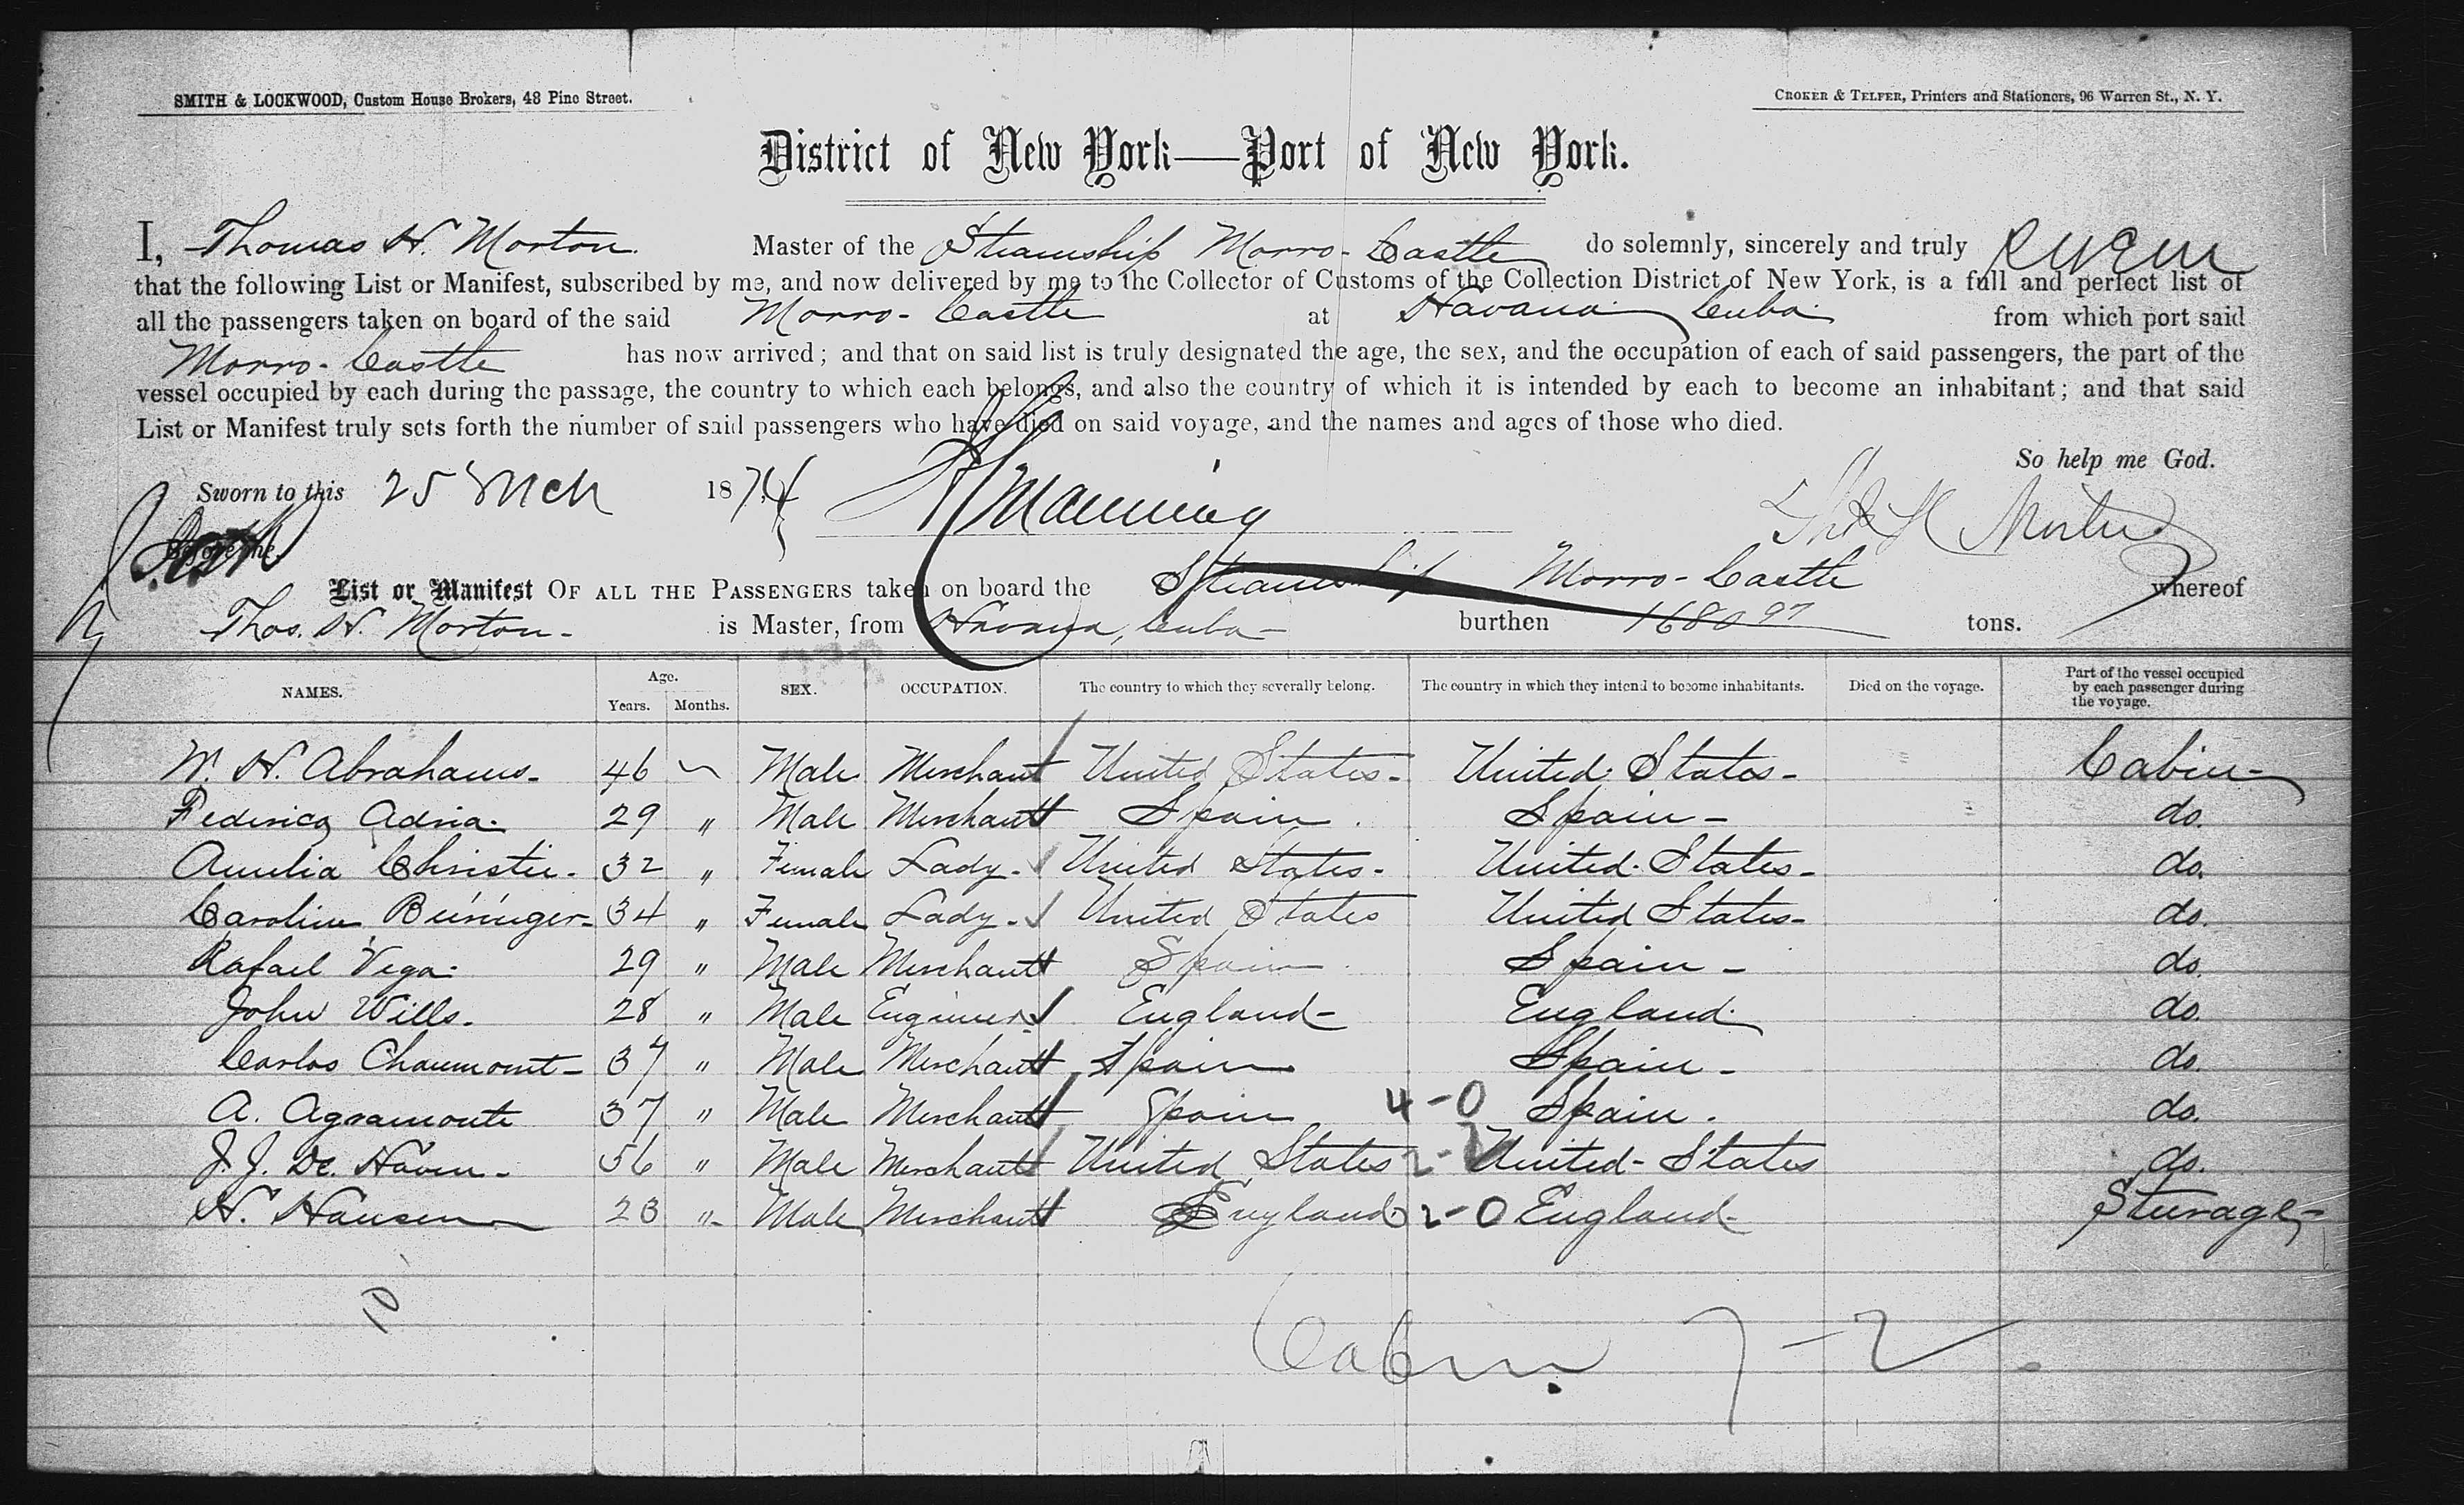 SMITH & LOCKWOOD, Custom House Brokers, 48 Pine Street.
CROKER & TELFER, Printers and Stationers, 96 Warren St., N. Y.
District of New York—Port of New York.
I, Thomas H. Morton Master of the Steamship Morro-Castle do solemnly, sincerely and truly swear
that the following List or Manifest, subscribed by me, and now delivered by me to the Collector of Customs of the Collection District of New York, is a full and perfect list of
all the passengers taken on board of the said Morro-Castle at Havana Cuba from which port said
Morro-Castle has now arrived; and that on said list is truly designated the age, the sex, and the occupation of each of said passengers, the part of the
vessel occupied by each during the passage, the country to which each belongs, and also the country of which it is intended by each to become an inhabitant; and that said
List or Manifest truly sets forth the number of said passengers who have died on said voyage, and the names and ages of those who died.
So help me God.
Sworn to this 25 Mch 1874 Manning Thos H Morton
Before me
List or Manifest OF ALL THE PASSENGERS taken on board the Steamship Morro-Castle whereof
Thos. H. Morton- is Master, from Havana, Cuba- burthen 1680 97 tons.
NAMES. Age. Years. Months. SEX. OCCUPATION. The country to which they severally belong. The country in which they intend to become inhabitants. Died on the voyage. Part of the vessel occupied by each passenger during the voyage.
W. H. Abrahams- 46 Male Merchant United States- United States- Cabin-
Federico Adria. 29 " Male Merchant Spain. Spain- do.
Amelia Christie- 32 " Female Lady- United States- United States- do.
Caroline Bininger- 34 " Female Lady- United States United States- do.
Rafael Vega. 29 " Male Merchant Spain. Spain- do.
John Wills. 28 " Male Engineer England- England. do.
Carlos Chaumont- 37 " Male Merchant Spain Spain- do.
A. Agramonte 37 " Male Merchant Spain 4-0 Spain. do.
J. J. De Haven- 56 " Male Merchant United States 2-2 United-States do.
H. Hansen 23 " Male Merchant England 2-0 England- Sturage-
Cabin 7-2